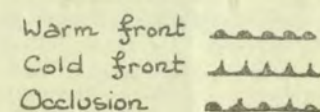 Warm front
Cold front
Occlusion